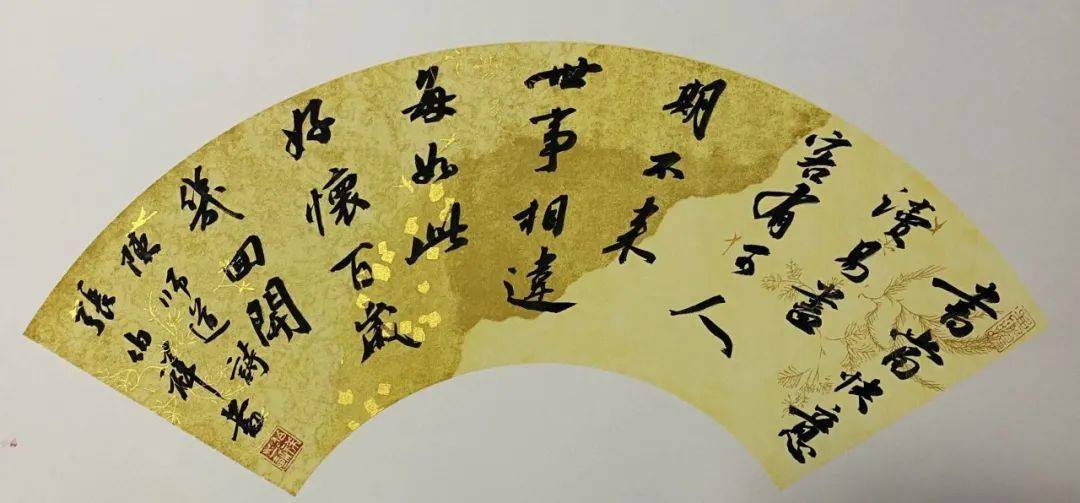 書當快意
讀易盡
客有可人
期不来
世事相違
每如此
好懷百歲
幾回開
陳師道詩書
張伯祥